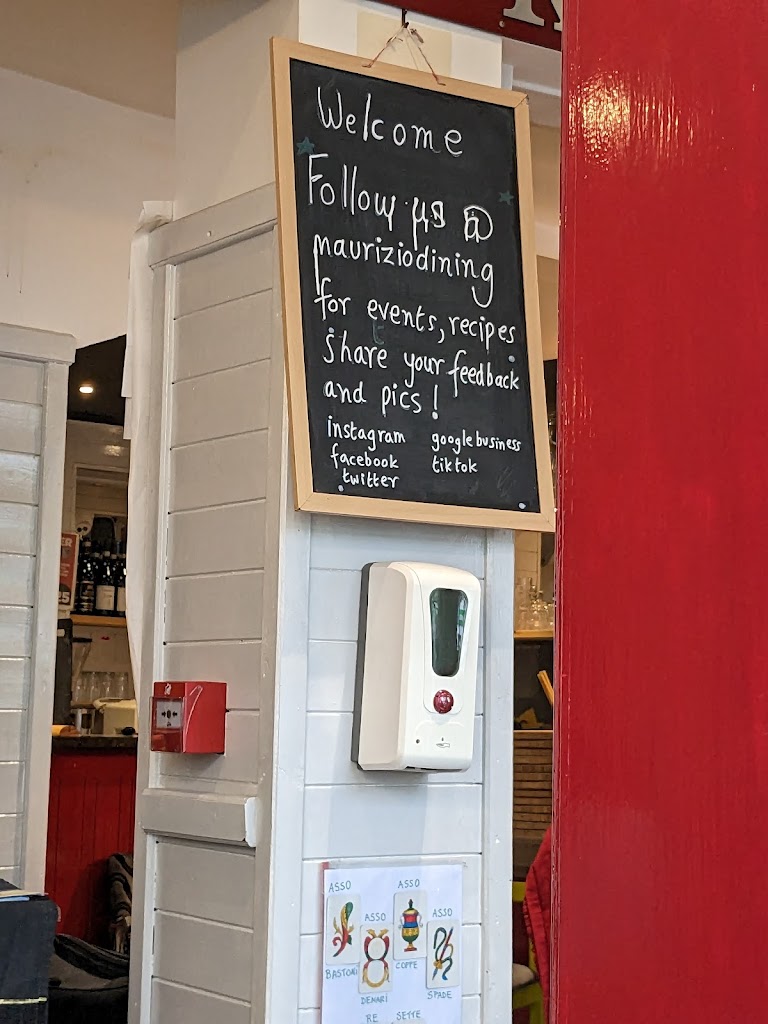 Welcome
Follow us @
mauriziodining
for events, recipes
share your feedback
and pics!
instagram googlebusiness
facebook tiktok
twitter
ASSO ASSO
ASSO ASSO
BASTONI COPPE
DENARI SPADE
RE SETTE